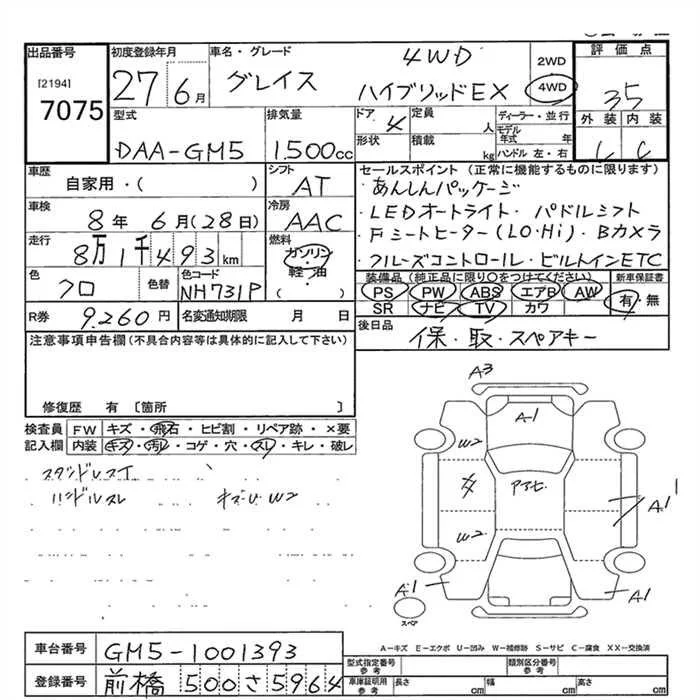 出品番号 初度登録年月 車名・グレード 4WD 2WD 評価点
[2194] 7075 27 6月 グレイス ハイブリッドEX 4WD 35
外装 内装
型式 排気量 ドア 4 定員 人 ディーラー・並行
DAA-GM5 1.500cc 形状 積載 kg モデル年式 年 ハンドル 左・右 C
車歴 シフト セールスポイント (正常に機能するものに限ります)
自家用・( ) AT あんしんパッケージ
車検 冷房 ・LEDオートライト・パドルシフト
8年 6月(28日) AAC ・Fシートヒーター(LO・Hi)・Bカメラ
走行 燃料
8万1千493km ガソリン ・クルーズコントロール・ビルトインETC
軽油 ( )
色 色替 色コード 装備品(純正品に限り〇をつけてください) 新車保証書
クロ NH731P PS PW ABS エアB AW 有・無
SR ナビ TV カワ
R券 9.260円 名変通知期限 月 日 後日品 保・取・スペアキー
注意事項申告欄(不具合内容等は具体的に記入して下さい)
修復歴 有 〔箇所 〕
検査員 FW キズ・飛石・ヒビ割・リペア跡・×要
記入欄 内装 キズ・汚レ・コゲ・穴・スレ・キレ・破レ
ハンドルスレ キズU W2
A3
A1
W2
W2
A1
A1
A1
スペア
A-キズ E-エクボ U-凹み W-補修跡 S-サビ C-腐食 XX-交換済
車台番号 GM5-1001393 型式指定番号 類別区分番号
参考 参考
登録番号 前橋 500 さ 5964 車庫証明用 参考 長さ cm 幅 cm 高さ cm